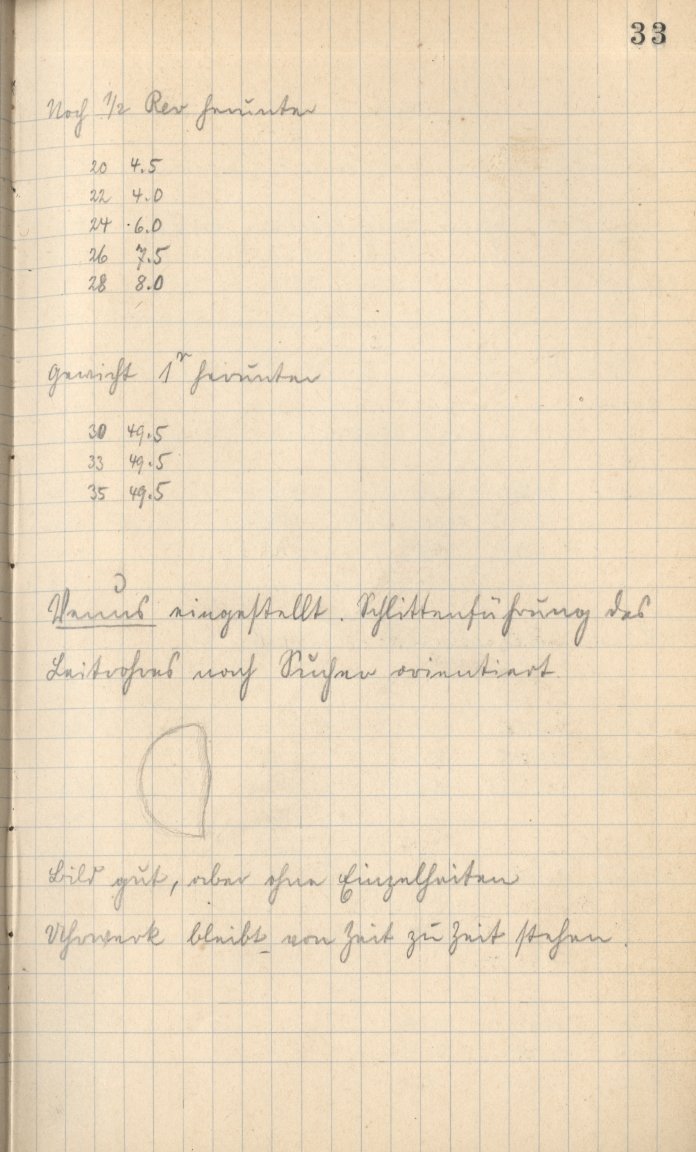 33
Noch 1/2 Rev herunter
20 4.5
22 4.0
24 6.0
26 7.5
28 8.0
Gewicht 1r herunter
30 49.5
33 49.5
35 49.5
Venus eingestellt. Schlittenführung des
Leitrohres nach Sucher orientiert
Bild gut, aber ohne Einzelheiten
Uhrwerk bleibt von Zeit zu Zeit stehen.